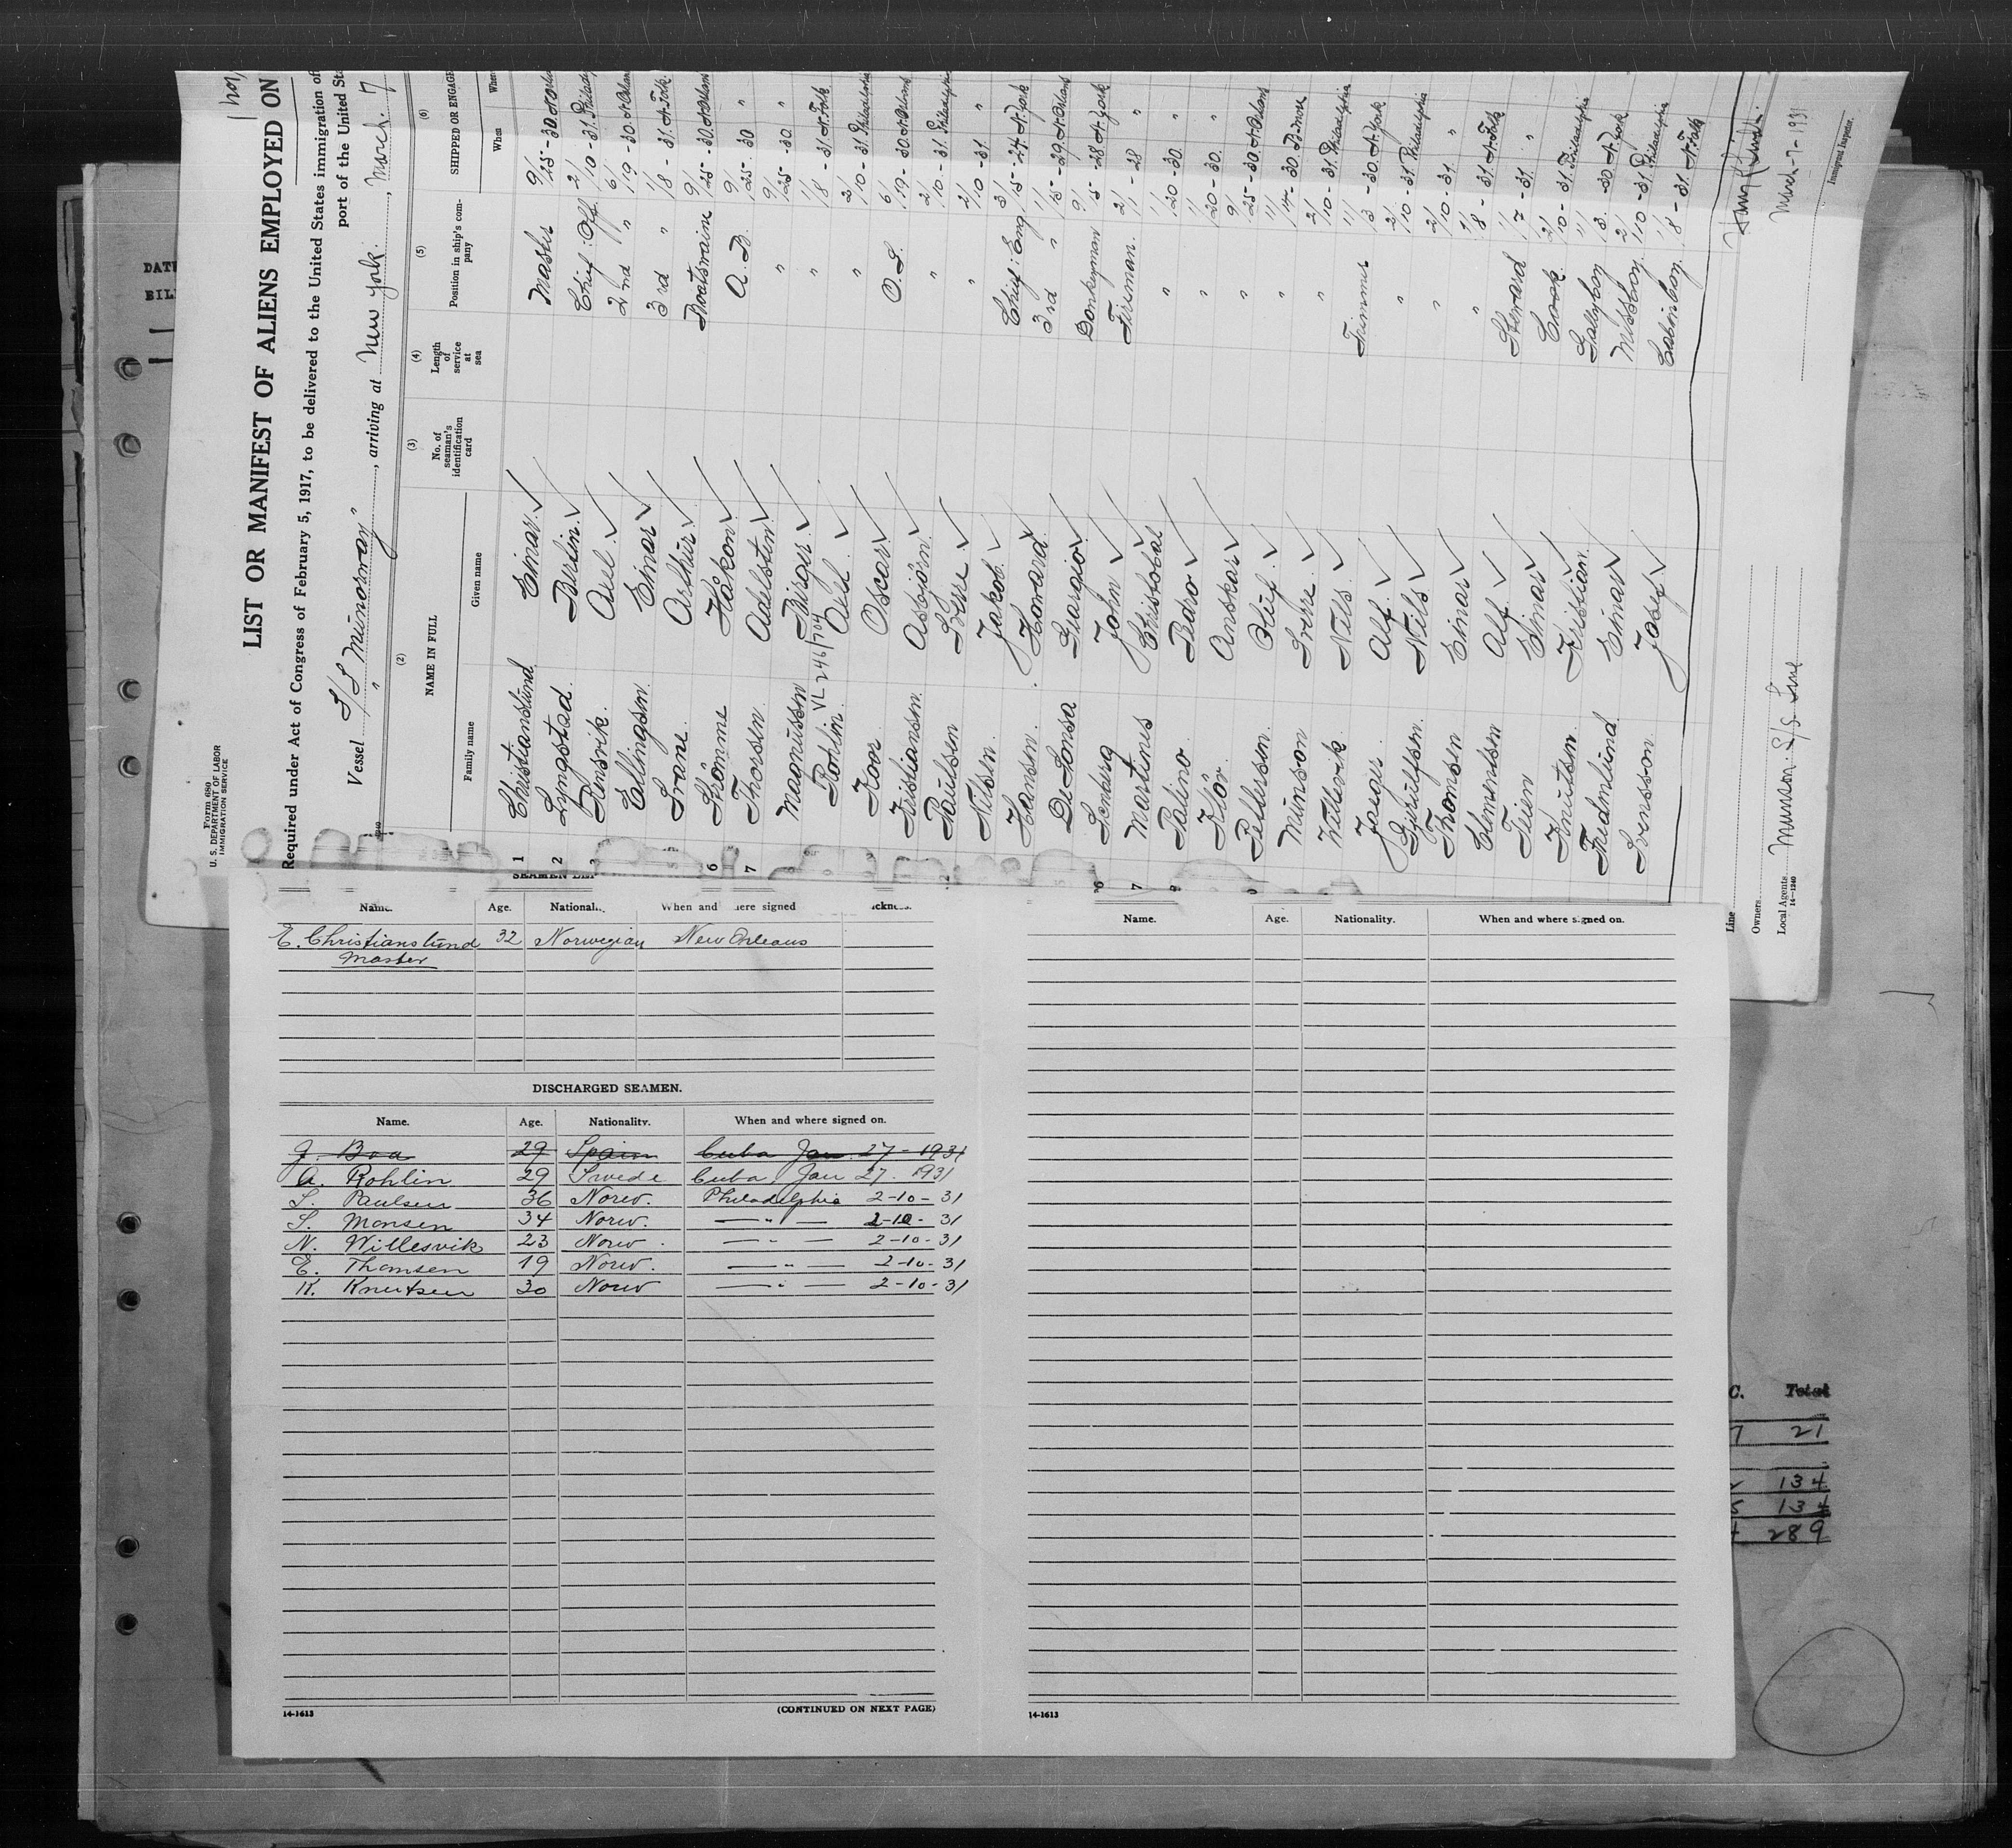 Form 680
U. S. DEPARTMENT OF LABOR
IMMIGRATION SERVICE
LIST OR MANIFEST OF ALIENS EMPLOYED ON
Required under Act of Congress of February 5, 1917, to be delivered to the United States immigration of
port of the United St
Vessel S/S "Munorway", arriving at New York, March 7
(2) (3) (4) (5) (6)
NAME IN FULL No. of seaman's identification card Length of service at sea Position in ship's company SHIPPED OR ENGAGE
Family name Given name When Where
1 Christianslund Einar Master 9/25-30 N. Orlea
2 Lyngstad Birlin Chief Off. 2/10-31 Philadel
3 Rensvik Axel 2nd " 6/19-30 N. Orleans
Ellingsen Einar 3rd " 1/8-31 N. Folk
Svane Arthur Boatswain 9/25-30 N. Orleans
6 Strömme Håkon A. B. 9/25-30 "
7 Thorsen Adelsten " 9/25-30 "
Magnussen Birger " 1/8-31 N. Folk
VL 246/704
Rohlin Axel " 2/10-31 Philadelphia
Koos Oscar O. S. 6/19-30 N. Orleans
Kristiansen Asbjörn " 2/10-31 Philadelphia
Paulsen Sverre " 2/10-31 "
Nilsen Jakob Chief Eng 3/15-27 N. York
Hansen Howard 3rd " 1/15-29 N. Orleans
De Sousa Giorgio Donkeyman 9/5-28 N. York
Senberg John Fireman 2/1-28 "
Martines Christobal " 11/20-30 "
Palino Pedro " 11/20-30 "
Klör Anskar " 9/25-30 N. Orleans
Pettersson Oluf " 11/14-30 B.more
Munson Sverre " 2/10-31 Philadelphia
Willesvik Nils Trimmer 11/3-30 N. York
Jaeger Alf " 2/10-31 Philadelphia
Gjeruldsen Nils " 2/10-31 "
Thomsen Einar " 1/8-31 N. Folk
Clementsen Alf Steward 1/7-31 "
Teien Einar Cook 2/10-31 Philadelphia
Knutsen Kristian Galleyboy 11/3-30 N. York
Fredmlund Einar Messboy 2/10-31 Philadelphia
Svensson Josef Cabinboy 1/8-31 N. Folk
Line
Owners
Local Agents Munson S/S Line
14-1240
March-7-1931
Immigrant Inspector.
Name. Age. Nationali When and where signed
E. Christianslund 32 Norwegian New Orleans
Master
DISCHARGED SEAMEN.
Name. Age. Nationality. When and where signed on.
J. Boa 29 Spain Cuba Jan. 27-1931
A. Rohlin 29 Swede Cuba Jan 27. 1931
S. Paulsen 36 Norw. Philadelphia 2-10-31
S. Monsen 34 Norw. — " — 2-10-31
N. Willesvik 23 Norw. — " — 2-10-31
E. Thomsen 19 Norw. — " — 2-10-31
K. Knutsen 30 Norw — " — 2-10-31
14-1613
(CONTINUED ON NEXT PAGE)
Name. Age. Nationality. When and where signed on.
14-1613
DAT
BIL
C. Total
7 21
134
5 134
289